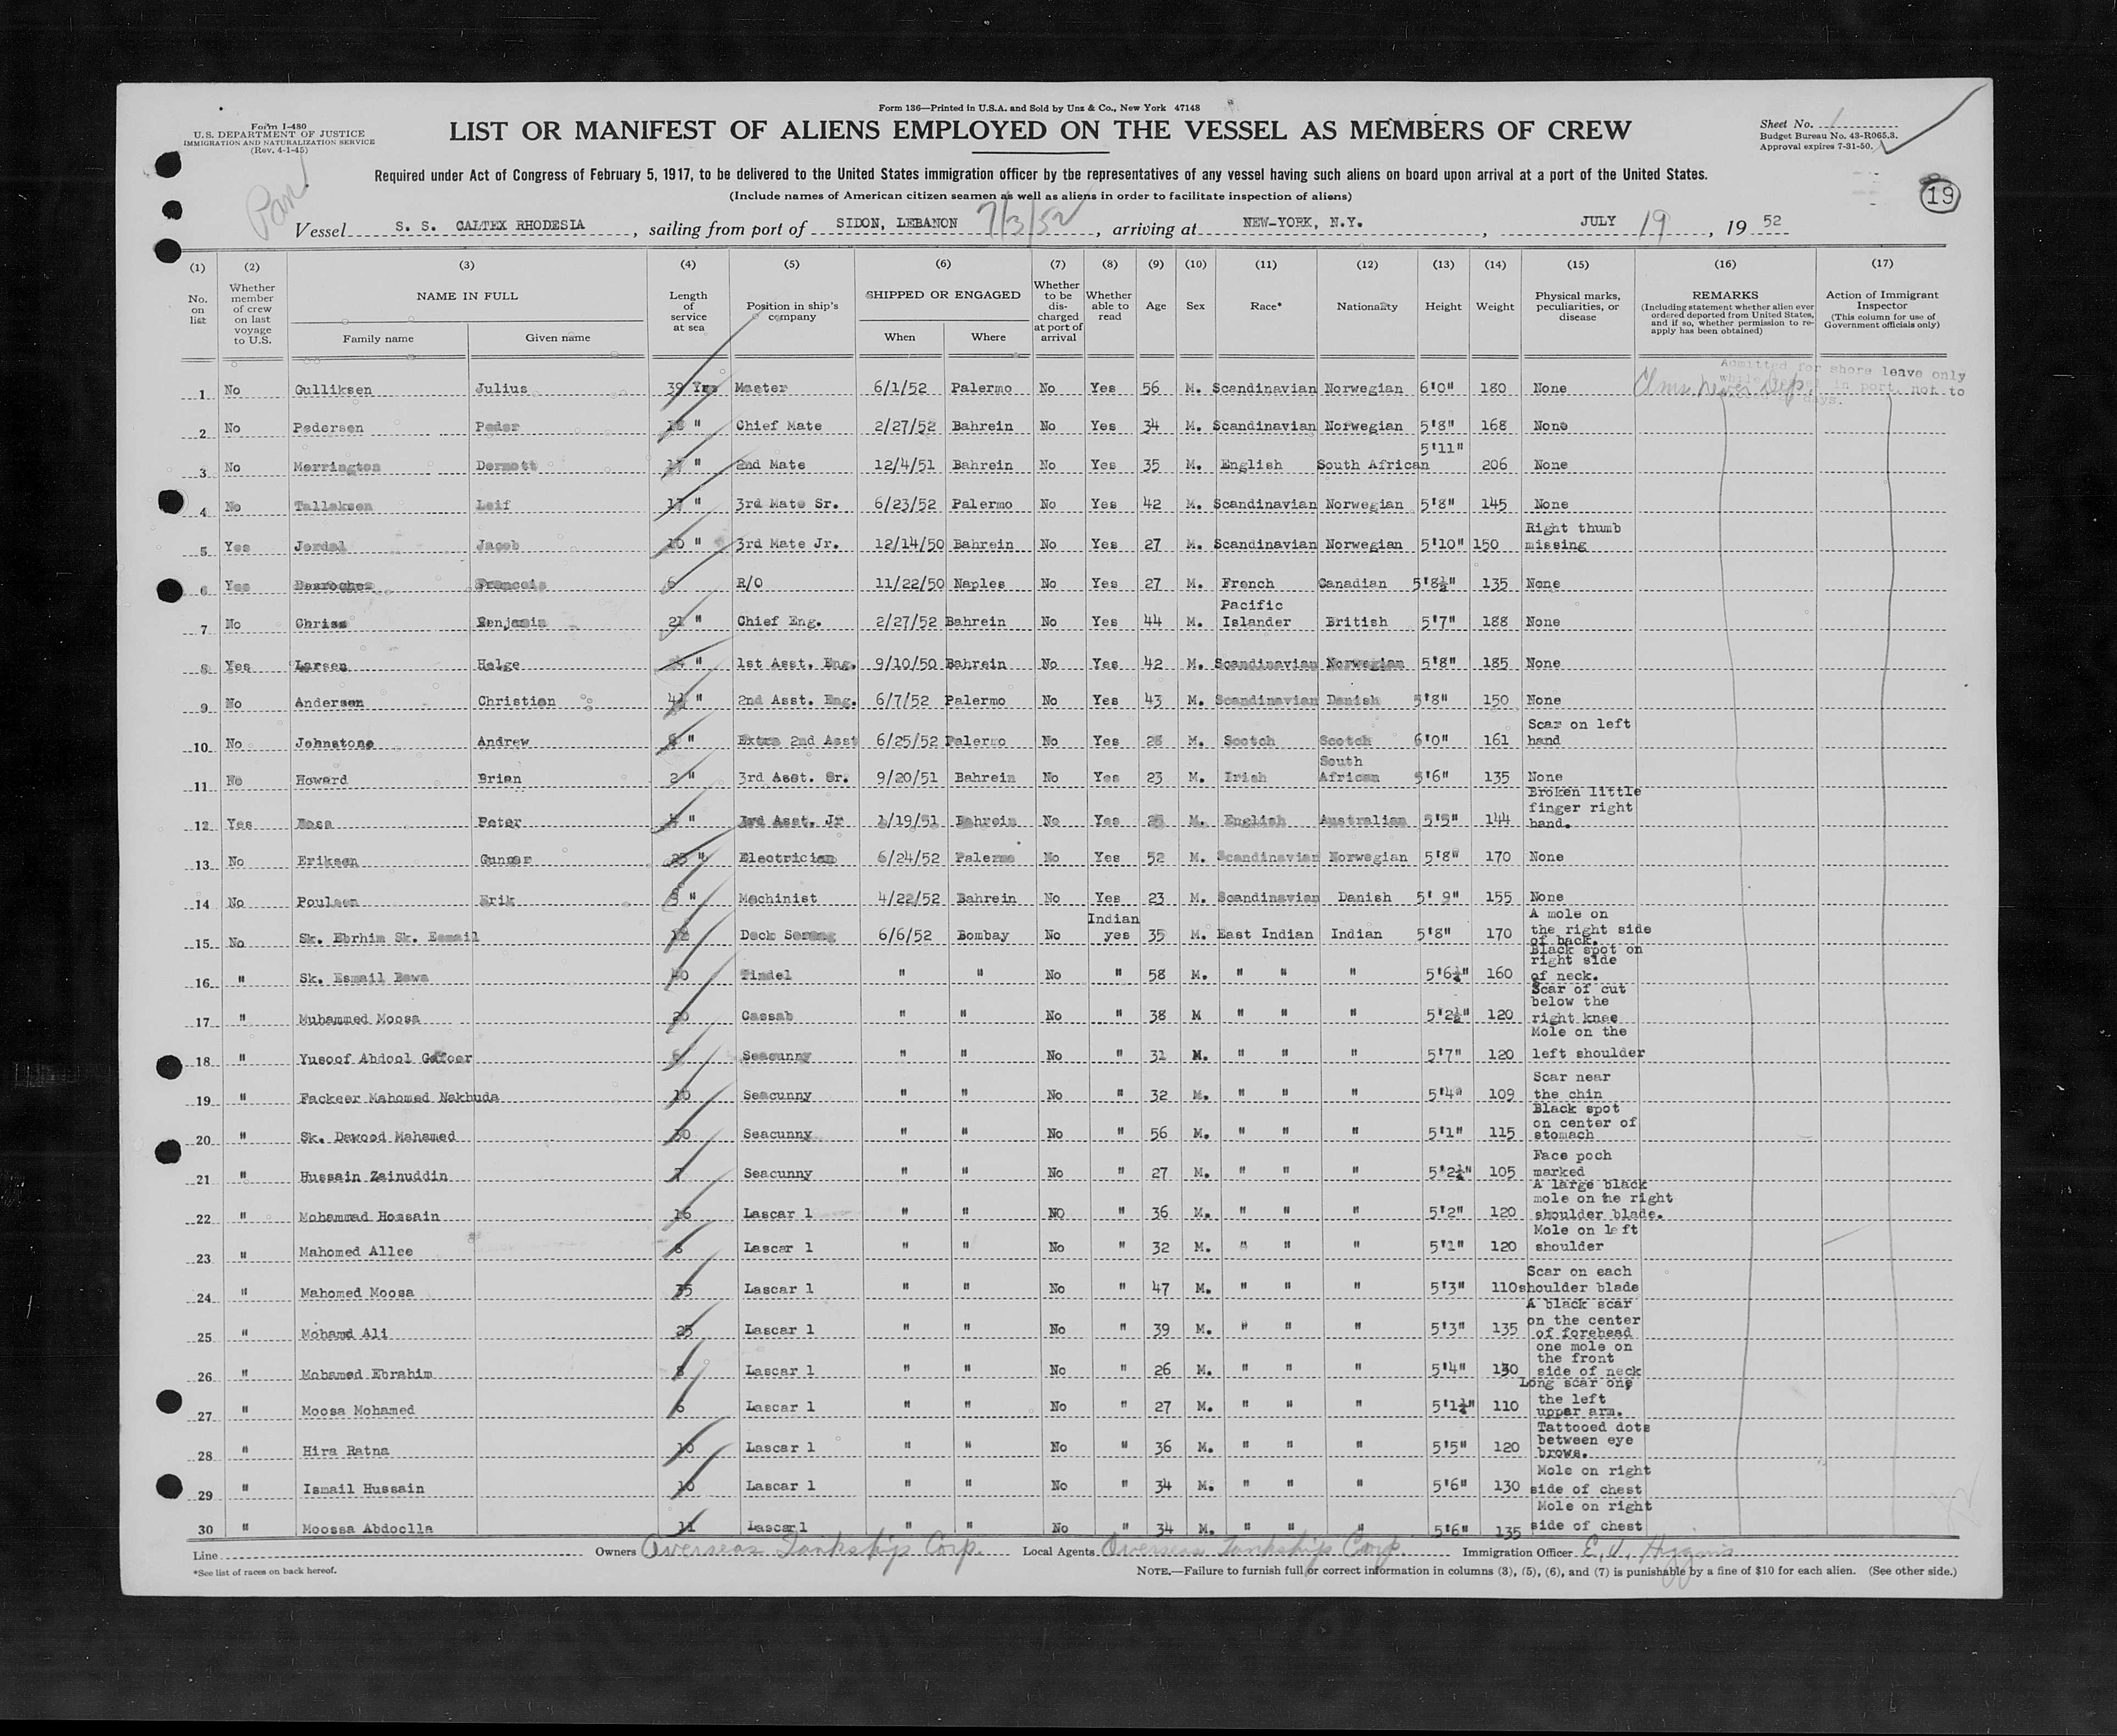 Form 136—Printed in U.S.A. and Sold by Unz & Co., New York 47148
Form I-480
U.S. DEPARTMENT OF JUSTICE
IMMIGRATION AND NATURALIZATION SERVICE
(Rev. 4-1-45)
LIST OR MANIFEST OF ALIENS EMPLOYED ON THE VESSEL AS MEMBERS OF CREW
Sheet No. 1
Budget Bureau No. 43-R065.3.
Approval expires 7-31-50.
Required under Act of Congress of February 5, 1917, to be delivered to the United States immigration officer by the representatives of any vessel having such aliens on board upon arrival at a port of the United States.
(Include names of American citizen seamen as well as aliens in order to facilitate inspection of aliens)
19
Pan
Vessel S. S. CALTEX RHODESIA, sailing from port of SIDON, LEBANON 7/3/52, arriving at NEW-YORK, N.Y., JULY 19, 19 52
(1) (2) (3) (4) (5) (6) (7) (8) (9) (10) (11) (12) (13) (14) (15) (16) (17)
No. on list Whether member of crew on last voyage to U.S. NAME IN FULL Family name Given name Length of service at sea Position in ship's company SHIPPED OR ENGAGED When Where Whether to be discharged at port of arrival Whether able to read Age Sex Race* Nationality Height Weight Physical marks, peculiarities, or disease REMARKS (Including statement whether alien ever ordered deported from United States, and if so, whether permission to reapply has been obtained) Action of Immigrant Inspector (This column for use of Government officials only)
Admitted for shore leave only
in port, not to
days.
1 No Gulliksen Julius 39 Yrs Master 6/1/52 Palermo No Yes 56 M. Scandinavian Norwegian 6'0" 180 None Clms never dep.
2 No Pedersen Peder " Chief Mate 2/27/52 Bahrein No Yes 34 M. Scandinavian Norwegian 5'8" 168 None
3 No Merrington Dermott 17 " 2nd Mate 12/4/51 Bahrein No Yes 35 M. English South African 5'11" 206 None
4 No Tallaksen Leif 17 " 3rd Mate Sr. 6/23/52 Palermo No Yes 42 M. Scandinavian Norwegian 5'8" 145 None
5 Yes Jordal Jacob 10 " 3rd Mate Jr. 12/14/50 Bahrein No Yes 27 M. Scandinavian Norwegian 5'10" 150 Right thumb missing
6 Yes Desroches Francois 6 R/O 11/22/50 Naples No Yes 27 M. French Canadian 5'8½" 135 None
7 No Chriss Benjamin 21 " Chief Eng. 2/27/52 Bahrein No Yes 44 M. Pacific Islander British 5'7" 188 None
8 Yes Larsen Helge " 1st Asst. Eng. 9/10/50 Bahrein No Yes 42 M. Scandinavian Norwegian 5'8" 185 None
9 No Andersen Christian 4½ " 2nd Asst. Eng. 6/7/52 Palermo No Yes 43 M. Scandinavian Danish 5'8" 150 None
10 No Johnstone Andrew " Extra 2nd Asst 6/25/52 Palermo No Yes 28 M. Scotch Scotch 6'0" 161 Scar on left hand
11 No Howard Brian 2 " 3rd Asst. Sr. 9/20/51 Bahrein No Yes 23 M. Irish South African 5'6" 135 None
12 Yes Peter " 3rd Asst. Jr 1/19/51 Bahrein No Yes 25 M. English Australian 5'5" 144 Broken little finger right hand.
13 No Eriksen Gunnar 25 " Electrician 6/24/52 Palermo No Yes 52 M. Scandinavian Norwegian 5'8" 170 None
14 No Poulsen Erik " Machinist 4/22/52 Bahrein No Yes 23 M. Scandinavian Danish 5' 9" 155 None
15 No Sk. Ebrhim Sk. Esmail 12 Deck Serang 6/6/52 Bombay No Indian yes 35 M. East Indian Indian 5'8" 170 A mole on the right side of back.
16 " Sk. Esmail Bawa 40 Tindel " " No " 58 M. " " " 5'6½" 160 Black spot on right side of neck.
17 " Muhammed Moosa 20 Cassab " " No " 38 M " " " 5'2½" 120 Scar of cut below the right knee
18 " Yusoof Abdool Gafoor 6 Seacunny " " No " 31 M. " " " 5'7" 120 Mole on the left shoulder
19 " Fackeer Mahomed Nakhuda 10 Seacunny " " No " 32 M. " " " 5'4" 109 Scar near the chin
20 " Sk. Dawood Mahamed 30 Seacunny " " No " 56 M. " " " 5'1" 115 Black spot on center of stomach
21 " Hussain Zainuddin 7 Seacunny " " No " 27 M. " " " 5'2½" 105 Face poch marked
22 " Mohammad Hossain 16 Lascar 1 " " NO " 36 M. " " " 5'2" 120 A large black mole on he right shoulder blade.
23 " Mahomed Allee 8 Lascar 1 " " No " 32 M. " " " 5'1" 120 Mole on left shoulder
24 " Mahomed Moosa 35 Lascar 1 " " No " 47 M. " " " 5'3" 110 Scar on each shoulder blade
25 " Mohamd Ali 25 Lascar 1 " " No " 39 M. " " " 5'3" 135 A black scar on the center of forehead
26 " Mohamed Ebrahim 8 Lascar 1 " " No " 26 M. " " " 5'4" 130 one mole on the front side of neck
27 " Moosa Mohamed 6 Lascar 1 " " No " 27 M. " " " 5'1½" 110 Long scar one the left upper arm.
28 " Hira Ratna 10 Lascar 1 " " No " 36 M. " " " 5'5" 120 Tattooed dots between eye brows.
29 " Ismail Hussain 10 Lascar 1 " " No " 34 M. " " " 5'6" 130 Mole on right side of chest
30 " Moossa Abdoclla 11 Lascar1 " " No " 34 M. " " " 5'6" 135 Mole on right side of chest
Line Owners Overseas Tankship Corp. Local Agents Overseas Tankship Corp. Immigration Officer E. J. Higgins
*See list of races on back hereof.
NOTE.—Failure to furnish full or correct information in columns (3), (5), (6), and (7) is punishable by a fine of $10 for each alien. (See other side.)